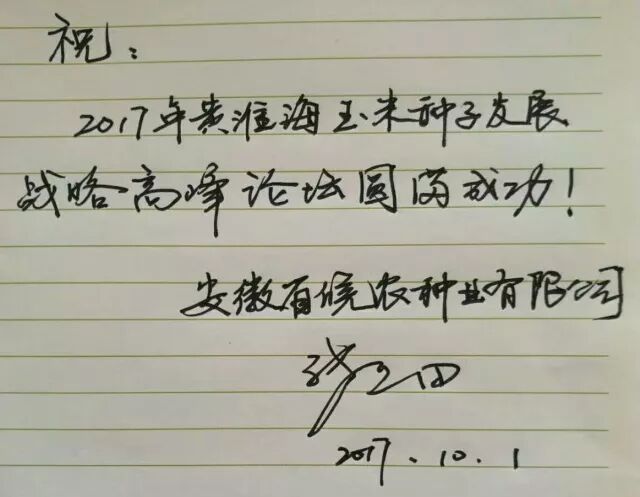 祝：
2017年黄淮海玉米种子发展
战略高峰论坛圆满成功！
安徽百倪农种业有限公司
2017.10.1